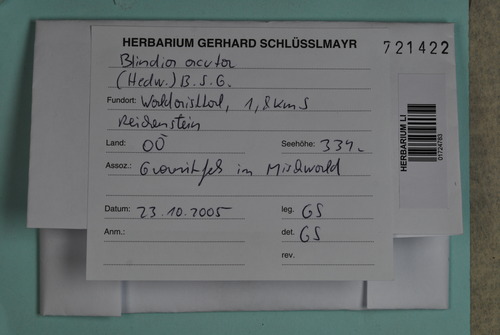 HERBARIUM GERHARD SCHLÜSSLMAYR
721422
Blindia acuta
(Hedw.) B.S.G.
Fundort: Waldaisttal, 1,8 km S
Reichenstein
Land: OÖ Seehöhe: 334
Assoz.: Granitfels im Mischwald
Datum: 23.10.2005 leg. GS
Anm.: det. GS
rev.
HERBARIUM LI
01724783